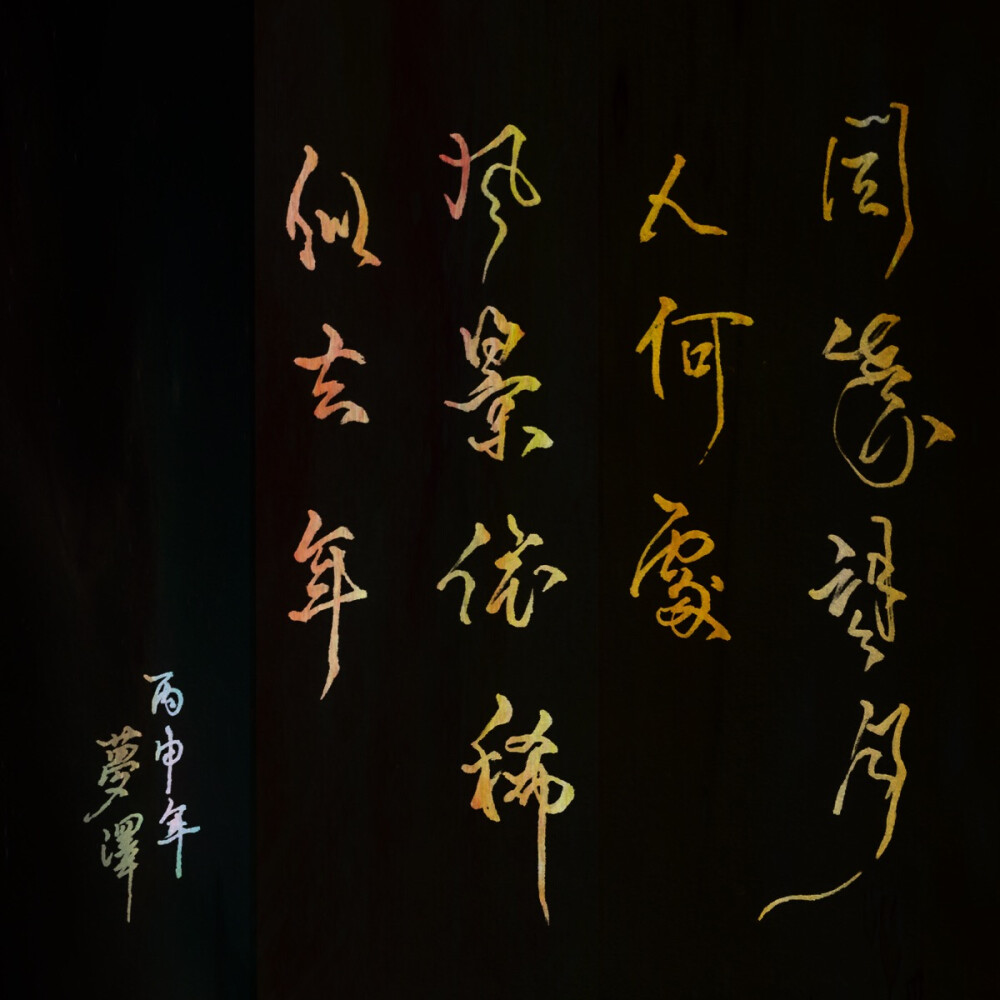 望月
人何處
風景依稀
似去年
丙申年
夢澤